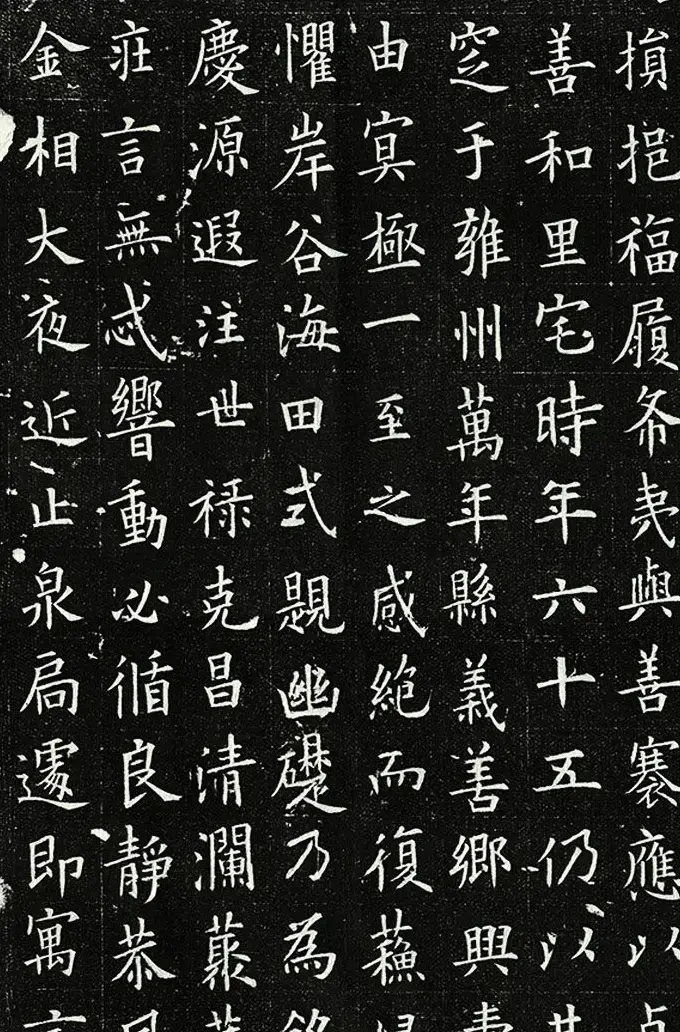 損挹福履希夷與善褰應以
善和里宅時年六十五仍以其
窆于雍州萬年縣義善鄉興
由冥極一至之感絕而復蘇
懼岸谷海田式題幽礎乃為銘
慶源遐注世祿克昌清瀾藂
莊言無忒響動必循良靜恭
金相大夜近止泉扃遽即寓言